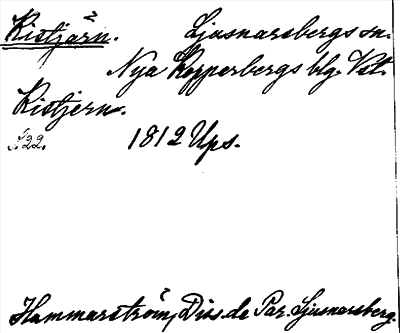 Kistjärn. Ljusnarsbergs sn.
Nya Kopperbergs blg. Vstm.
Kistjern.
s. 22. 1812 Ups.
Hammarström, Diss. de Par. Ljusnarsberg.